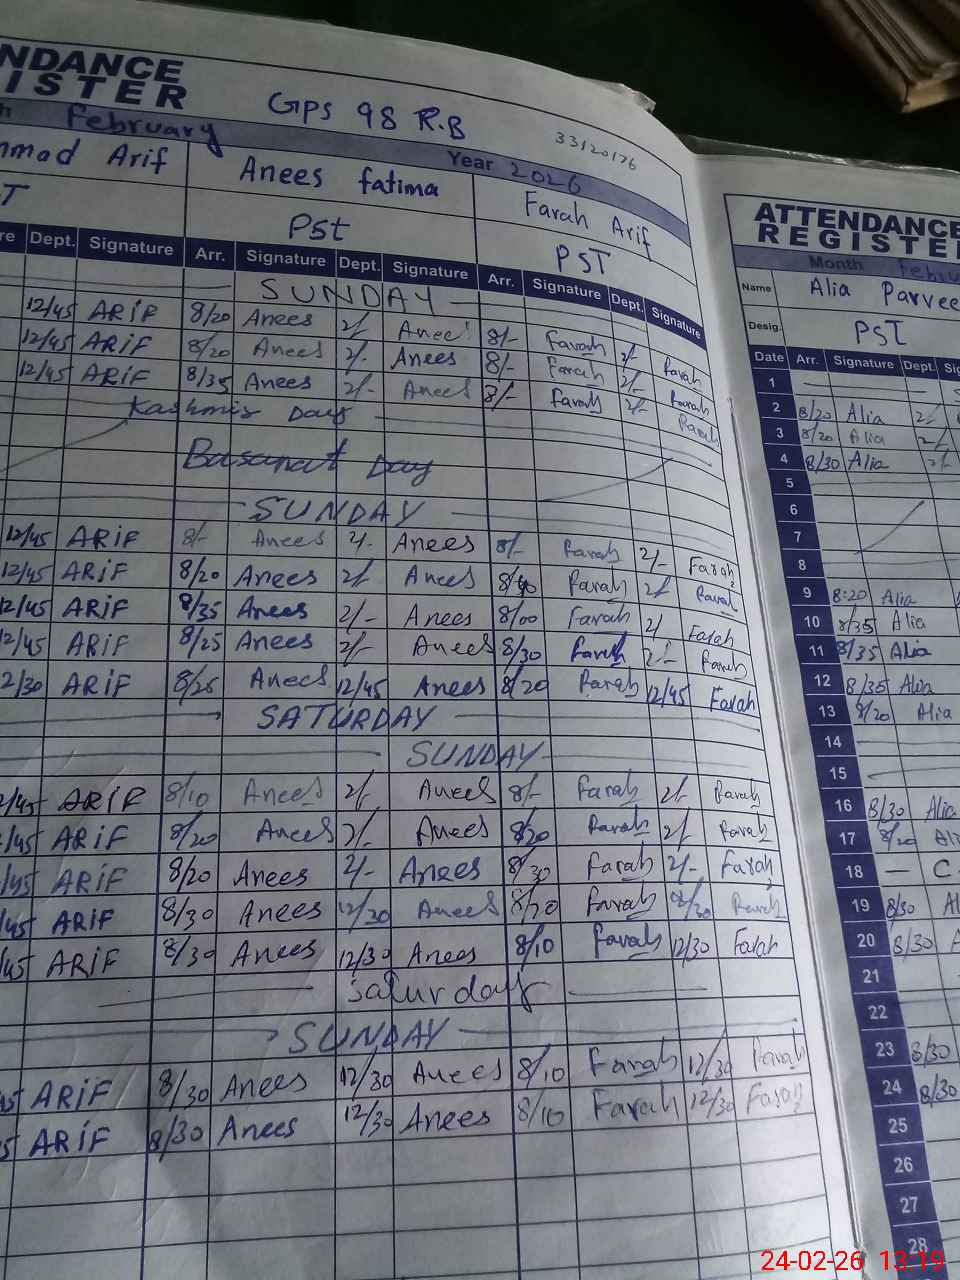 NDANCE
ISTER
GPS 98 R.B
33120176
February
Year 2026
mmad Arif
Anees fatima
Farah Arif
T
Pst
PST
re Dept. Signature Arr. Signature Dept. Signature Arr. Signature Dept. Signature
SUNDAY
12/45 ARIF 8/20 Anees 2/- Anees 8/- Farah 2/- Farah
12/45 ARIF 8/20 Anees 2/- Anees 8/- Farah 2/- Farah
12/45 ARIF 8/35 Anees 2/- Anees 8/- Farah 2/- Farah
Kashmir Day
Basanat Day
SUNDAY
12/45 ARIF 8/- Anees 2/- Anees 8/- Farah 2/- Farah
12/45 ARIF 8/20 Anees 2/- Anees Farah 2/- Farah
12/45 ARIF 8/35 Anees 2/- Anees 8/00 Farah 2/- Farah
12/45 ARIF 8/25 Anees 2/- Anees 8/30 Farah 2/- Farah
2/30 ARIF 8/25 Anees 12/45 Anees 8/20 Farah 12/45 Farah
SATURDAY
SUNDAY
2/45 ARIF 8/10 Anees 2/- Anees 8/- Farah 2/- Farah
/45 ARIF 8/20 Anees 2/- Anees 8/20 Farah 2/- Farah
/45 ARIF 8/20 Anees 2/- Anees 8/30 Farah 2/- Farah
/45 ARIF 8/30 Anees 12/30 Anees Farah Farah
/45 ARIF 8/30 Anees 12/30 Anees 8/10 Farah 12/30 Farah
Saturday
SUNDAY
45 ARIF 8/30 Anees 12/30 Anees 8/10 Farah 12/30 Farah
5 ARIF 8/30 Anees 12/30 Anees 8/10 Farah 12/30 Farah
ATTENDANCE
REGISTE
Month Febru
Name Alia Parvee
Desig. PST
Date Arr. Signature Dept. Sig
1
2 8/20 Alia 2/
3 8/20 Alia 2/-
4 8/30 Alia 2/-
5
6
7
8
9 8:20 Alia
10 8/35 Alia
11 8/35 Alia
12 8/35 Alia
13 8/20 Alia
14
15
16 8/30 Alia
17 8/20 Ali
18 — C
19 8/30 Al
20 8/30 A
21
22
23 8/30
24 8/30
25
26
27
28
24-02-26 13:19